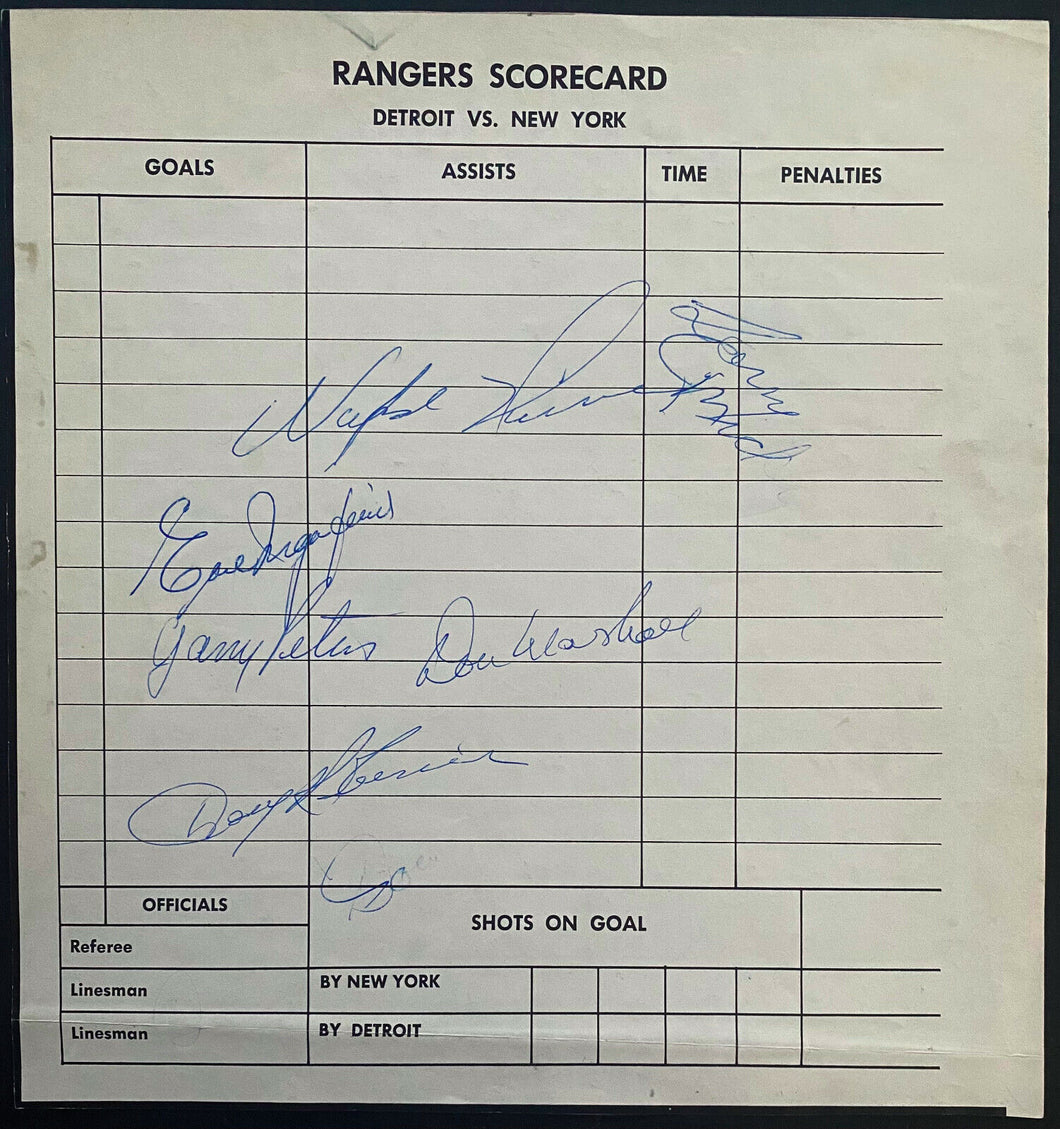 RANGERS SCORECARD
DETROIT VS. NEW YORK
GOALS ASSISTS TIME PENALTIES
Earl Ingarfield
Garry Peters Don Marshall
Doug
OFFICIALS
SHOTS ON GOAL
Referee
Linesman BY NEW YORK
Linesman BY DETROIT